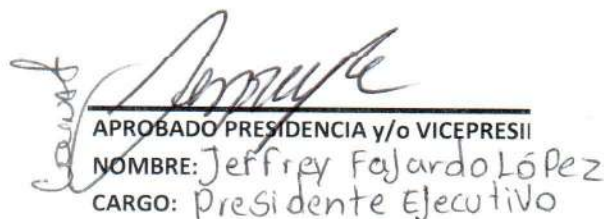 APROBADO PRESIDENCIA y/o VICEPRESII
NOMBRE: Jeffrey Fajardo López
CARGO: Presidente Ejecutivo